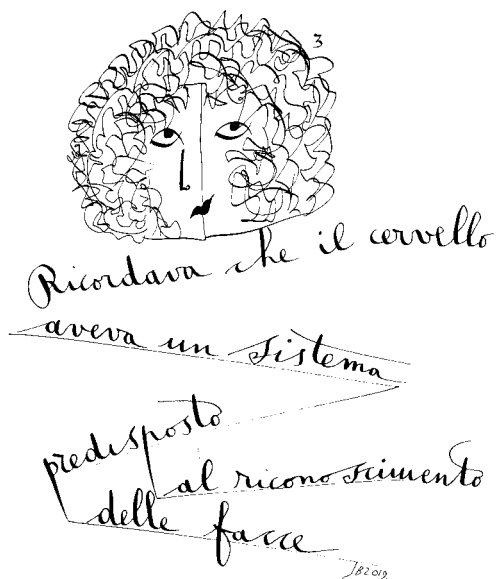 3
Ricordava che il cervello
aveva un sistema
predisposto
al riconoscimento
delle facce
JB2019